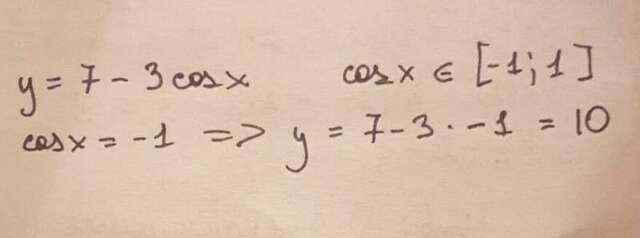 y = 7 - 3 cos x cos x ∈ [-1; 1]
cos x = -1 => y = 7 - 3 · -1 = 10